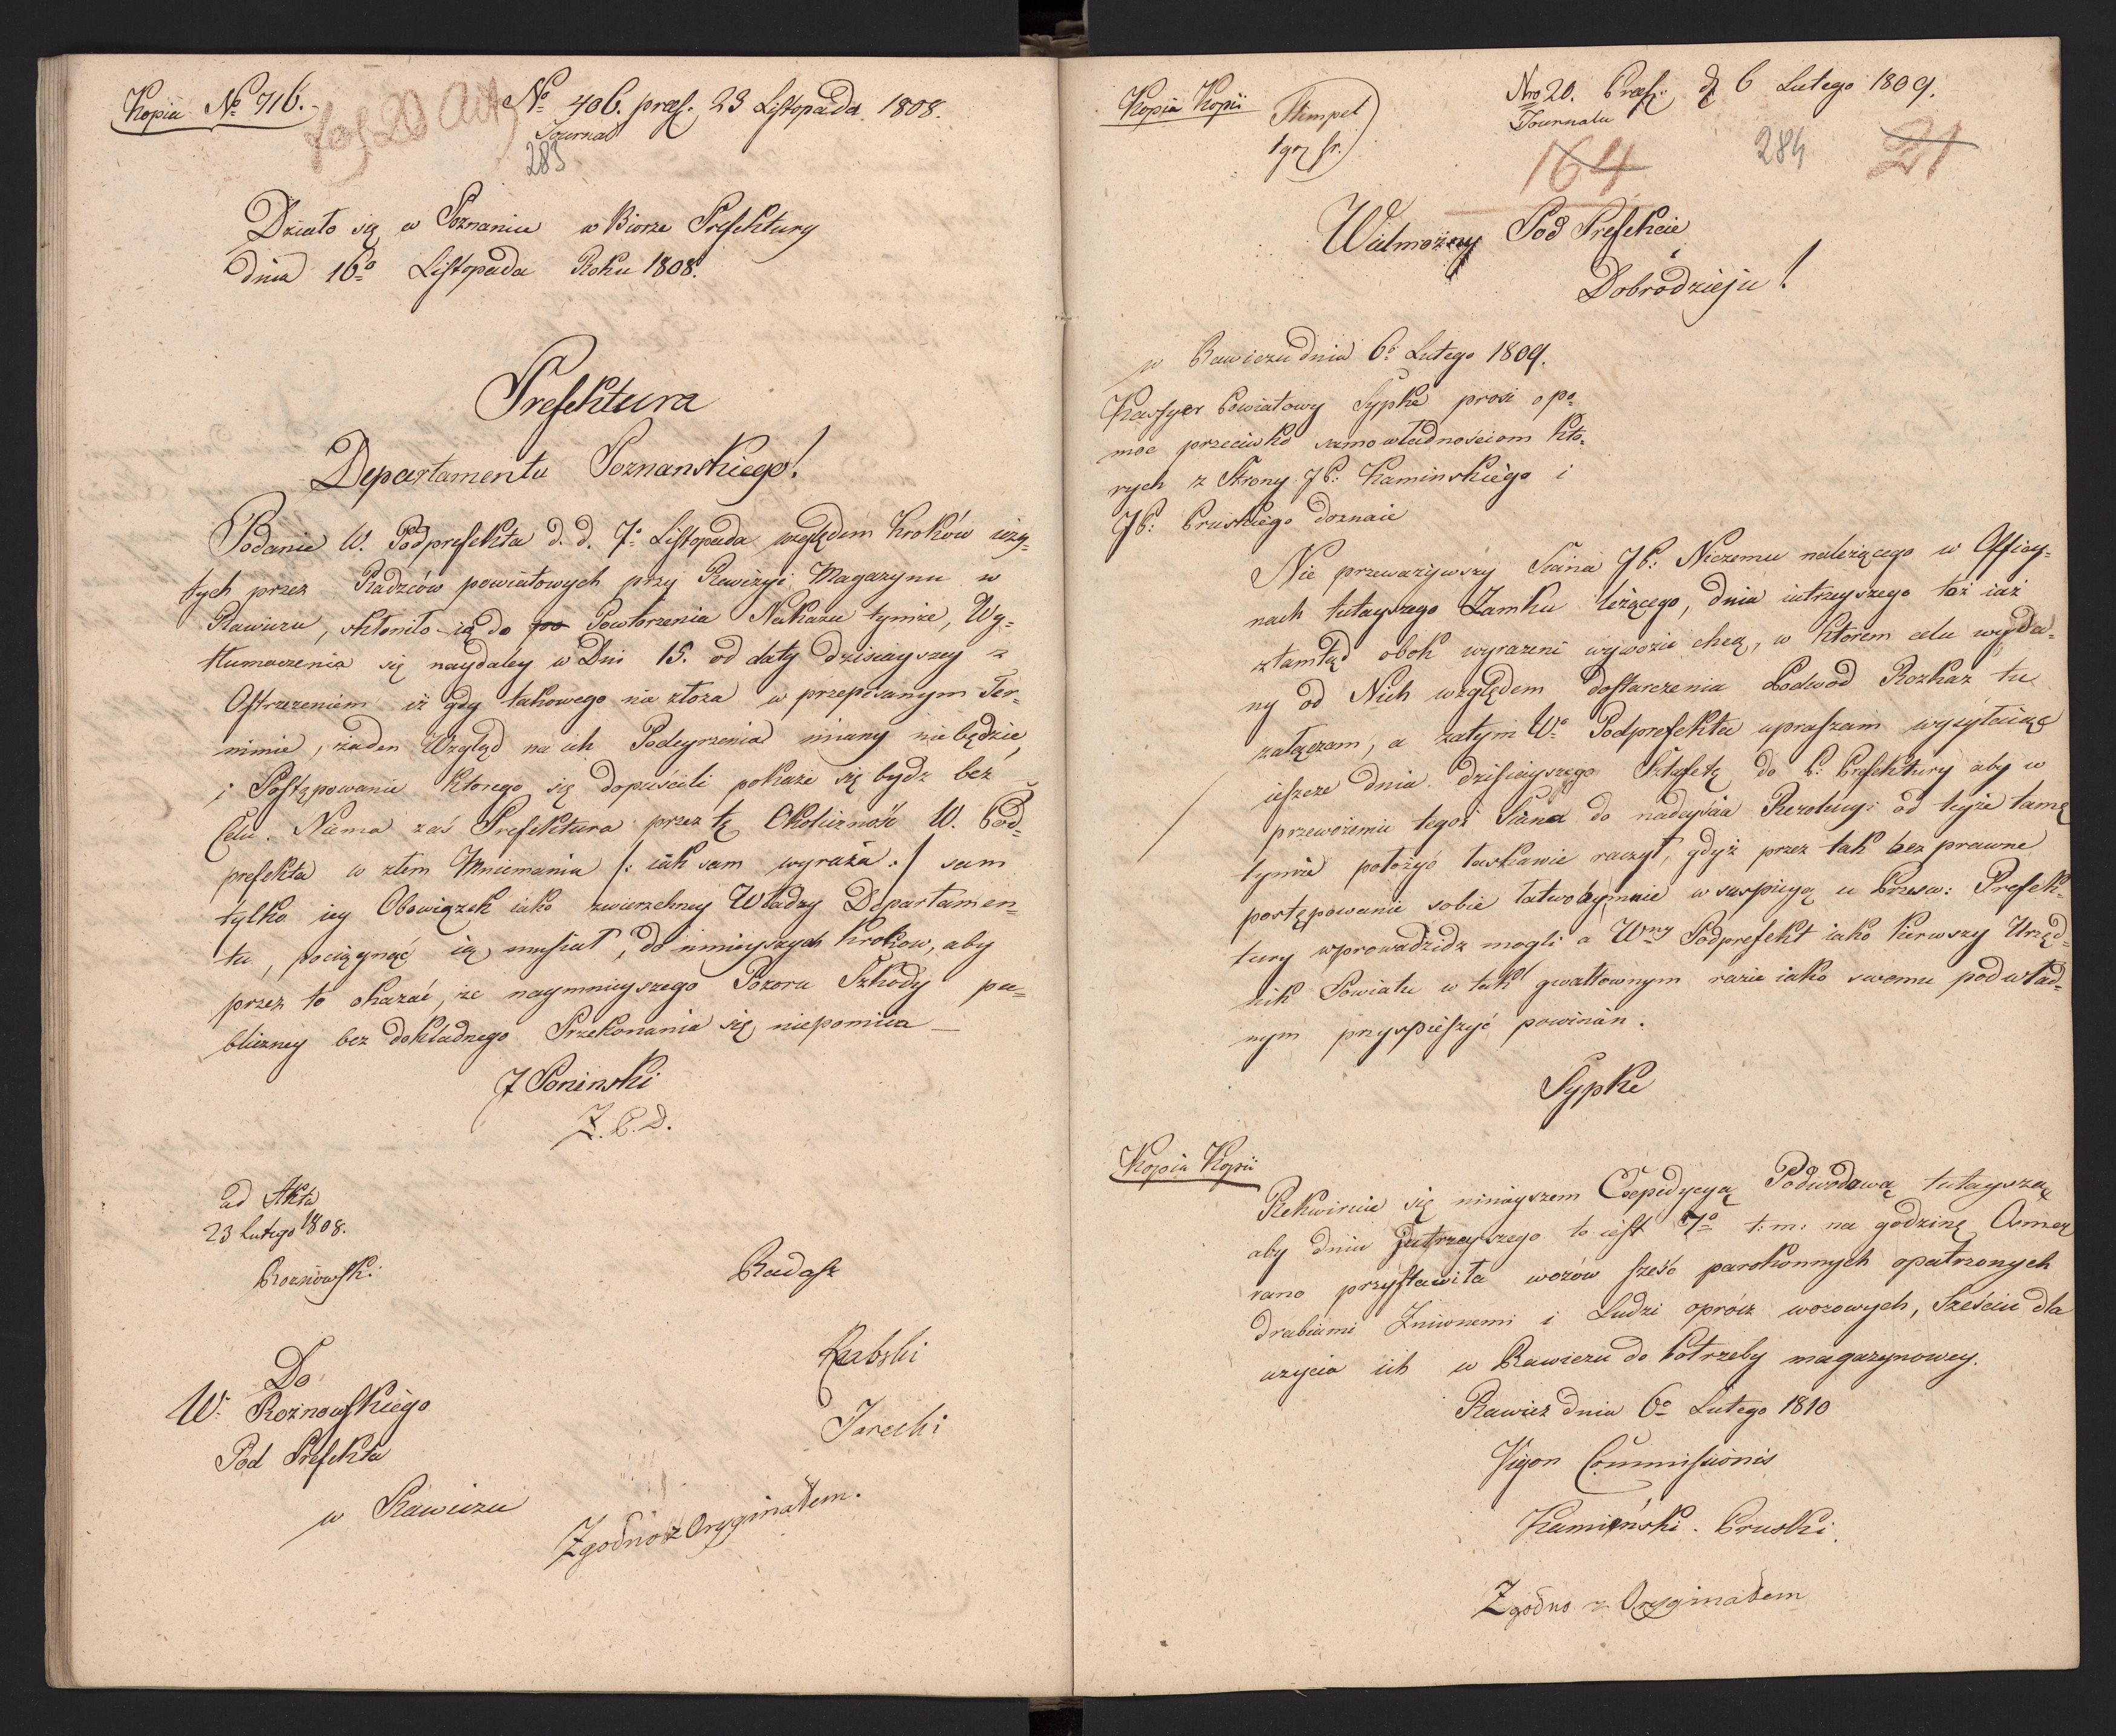 Kopia No 716.
No 406. præs. 23 Listopada 1808.
Journal
283
Działo się w Poznaniu w Biorze Prefektury
dnia 16o Listopada Roku 1808.
Prefektura
Departamentu Poznanskiego!
Podanie W. Podprefekta d. d. 7o Listopada względem Kroków uzy-
tych przez Radzców powiatowych przy Rewizyi Magazynu w
Rawiczu, skłoniło ią do Powtorzenia Nakazu tymże, Wy-
tłumaczenia się naydaley w Dni 15. od daty dzisieyszey z
Ostrzezeniem iż gdy takowego nie złoza w przepisanym Ter-
minie, żaden Wzgląd na ich Podeyrzenia miany nie będzie,
i Postępowanie ktorego się dopuscili pokaże się bydz bez
Celu. Niema zaś Prefektura przez tę Okoliczność W. Pod-
prefekta w złem Mniemaniu /: iak sam wyraża :/ sam
tylko iey Obowiązek iako zwierzchney Władzy Departamen-
tu, pociągnąć ią musiał, do ninieyszych krokow, aby
przez to okazać, że naymnieyszego Pozoru Szkody pu-
bliczney bez dokładnego Przekonania się niepomiia —
J Poninski
Z. P. D.
ad Akta
23 lutego 1808.
Roznowski
Radosz
Rabski
Jarecki
Do
W. Roznowskiego
Pod Prefekta
w Rawiczu
Zgodno z Oryginałem.
Kopia Kopii
Stempel
1 gr sr.
Nro 20. Præs: d 6 Lutego 1809.
Journalu
164
284
21
Wielmożny Pod Prefekcie
Dobrodzieju!
w Rawiczu dnia 6o Lutego 1809.
Kassyer Powiatowy Sypke prosi o po-
moc przeciwko samowładnościom któ-
rych z Strony JP: Kaminskiego i
JP: Pruskiego doznaie
Nie przeważywszy Siana JP: Niczemu należącego w Officy-
nach tutayszego Zamku leżącego, dnia iutrzeyszego toż iaż
ztamtąd obok wyrazeni wywozić chcą, w ktorem celu wyda-
ny od Nich względem dostarczenia Podwod Rozkaz tu
załączam, a zatym Wo Podprefekta upraszam wysyłaiąc
ieszcze dnia dzisieyszego Sztafetę do P: Prefektury aby w
przewożeniu tegoż Siana do nadeyścia Rezolucyi od teyże tamę
tymże położyć łaskawie raczył, gdyż przez tak bez prawne
postępowanie sobie łatwo w suspicyą u Przesw: Prefek-
tury wprowadzidz mogli a Wny Podprefekt iako Pierwszy Urzęd-
nik Powiatu w tak gwałtownym razie iako swemu podwład-
nym przyspieszyć powinien.
Sypke
Kopia Kopii
Rekwiruie się ninieyszem Expedycyą Podwodową tutayszą
aby dnia Jutrzeyszego to iest 7o t: m: na godzinę Osmą
rano przystawiła wozów sześć parokonnych opatrzonych
drabiami Zniwnemi i Ludzi oprócz wozowych, Sześciu dla
użycia ich w Rawiczu do Potrzeby magazynowey.
Rawicz dnia 6o Lutego 1810
Vigore Commissionis
Kamiński. Pruski.
Zgodno z Oryginałem